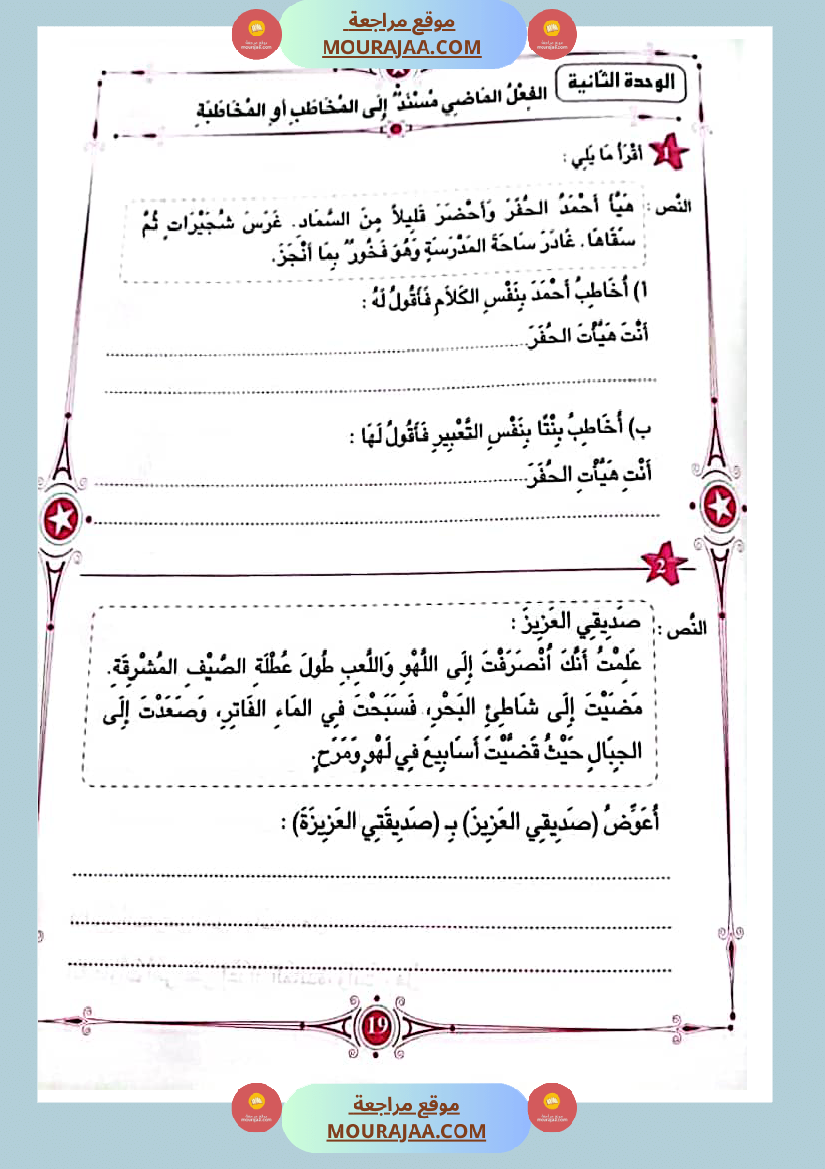 موقع مراجعة
MOURAJAA.COM
الوحدة الثانية
الفِعْلُ المَاضِي مُسْنَدٌ إِلَى المُخَاطَبِ أَوِ المُخَاطَبَةِ
1 أَقْرَأُ مَا يَلِي :
النّص : هَيَّأَ أَحْمَدُ الحُفَرَ وَأَحْضَرَ قَلِيلاً مِنَ السَّمَادِ. غَرَسَ شُجَيْرَاتٍ ثُمَّ
سَقَاهَا. غَادَرَ سَاحَةَ المَدْرَسَةِ وَهُوَ فَخُورٌ بِمَا أَنْجَزَ.
أ) أُخَاطِبُ أَحْمَدَ بِنَفْسِ الكَلاَمِ فَأَقُولُ لَهُ :
أَنْتَ هَيَّأْتَ الحُفَرَ
ب) أُخَاطِبُ بِنْتًا بِنَفْسِ التَّعْبِيرِ فَأَقُولُ لَهَا :
أَنْتِ هَيَّأْتِ الحُفَرَ
2
النّص : صَدِيقِي العَزِيزَ :
عَلِمْتُ أَنَّكَ اُنْصَرَفْتَ إِلَى اللَّهْوِ وَاللَّعِبِ طُولَ عُطْلَةِ الصَّيْفِ المُشْرِقَةِ.
مَضَيْتَ إِلَى شَاطِئِ البَحْرِ، فَسَبَحْتَ فِي المَاءِ الفَاتِرِ، وَصَعَدْتَ إِلَى
الجِبَالِ حَيْثُ قَضَّيْتَ أَسَابِيعَ فِي لَهْوٍ وَمَرَحٍ.
أُعَوِّضُ (صَدِيقِي العَزِيزَ) بِـ (صَدِيقَتِي العَزِيزَةَ) :
19
موقع مراجعة
MOURAJAA.COM